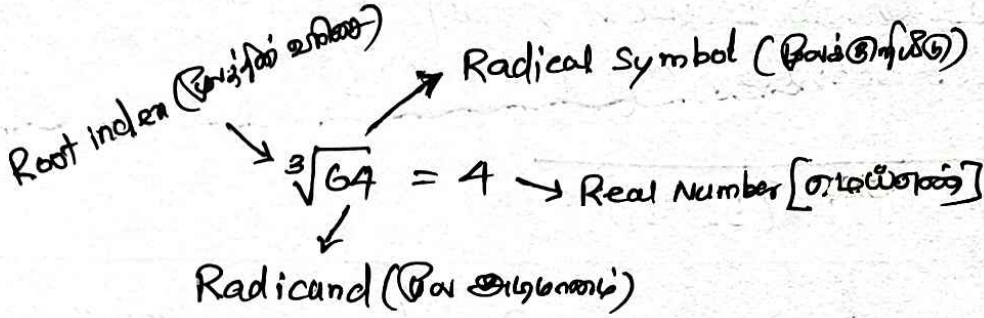 Root index (மூலத்தின் வரிசை)
Radical Symbol (மூலக்குறியீடு)
∛64 = 4 → Real Number [மெய்எண்]
Radicand (மூல அடிமானம்)